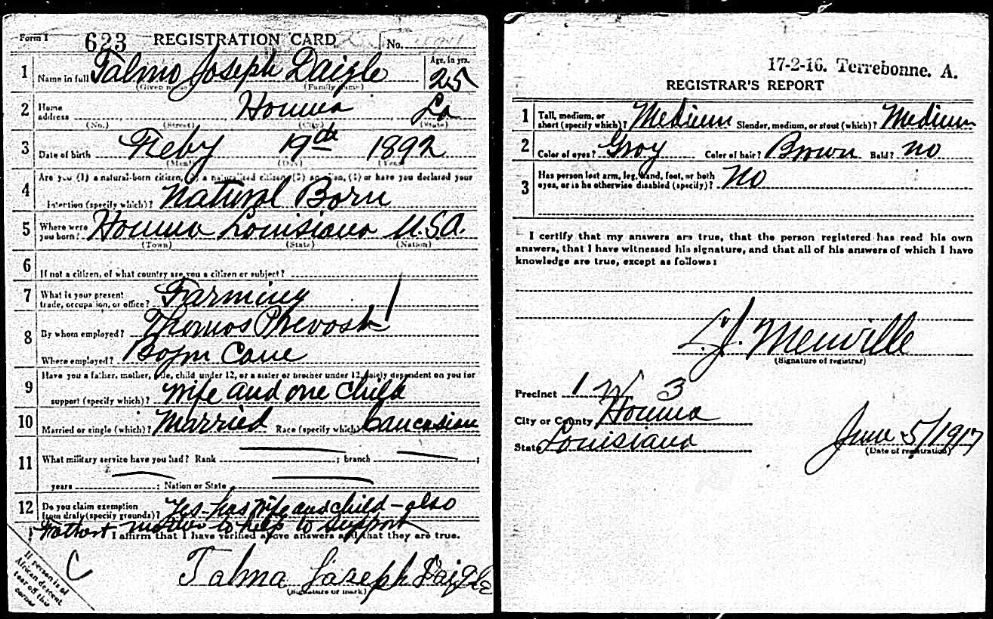 Form 1 623 REGISTRATION CARD No.
1 Name in full Talmo Joseph Daigle Age, in yrs. 25
(Given name) (Family name)
2 Home address Houma La
(No.) (Street) (City) (State)
3 Date of birth Feby 19th 1892
(Month) (Day) (Year)
4 Are you (1) a natural-born citizen, (2) a naturalized citizen, (3) an alien, (4) or have you declared your
intention (specify which)? Natural Born
5 Where were you born? Houma Louisiana U.S.A.
(Town) (State) (Nation)
6 If not a citizen, of what country are you a citizen or subject?
7 What is your present trade, occupation, or office? Farming
8 By whom employed? Thomas Prevost
Where employed? Cane
9 Have you a father, mother, wife, child under 12, or a sister or brother under 12, solely dependent on you for
support (specify which)? Wife and one child
10 Married or single (which)? Married Race (specify which)? Caucasian
11 What military service have you had? Rank ; branch ;
years ; Nation or State
12 Do you claim exemption from draft (specify grounds)? Yes has wife and child - also
Father & mother to help to support
I affirm that I have verified above answers and that they are true.
Talma Joseph Daigle
(Signature or mark)
If person is of
African descent
tear off this
corner
C
17-2-16. Terrebonne. A.
REGISTRAR'S REPORT
1 Tall, medium, or short (specify which)? Medium Slender, medium, or stout (which)? Medium
2 Color of eyes? Gray Color of hair? Brown Bald? no
3 Has person lost arm, leg, hand, foot, or both
eyes, or is he otherwise disabled (specify)? No
I certify that my answers are true, that the person registered has read his own
answers, that I have witnessed his signature, and that all of his answers of which I have
knowledge are true, except as follows:
L.J. Menville
(Signature of registrar)
Precinct 1 W 3
City or County Houma
State Louisiana
June 5/1917
(Date of registration)